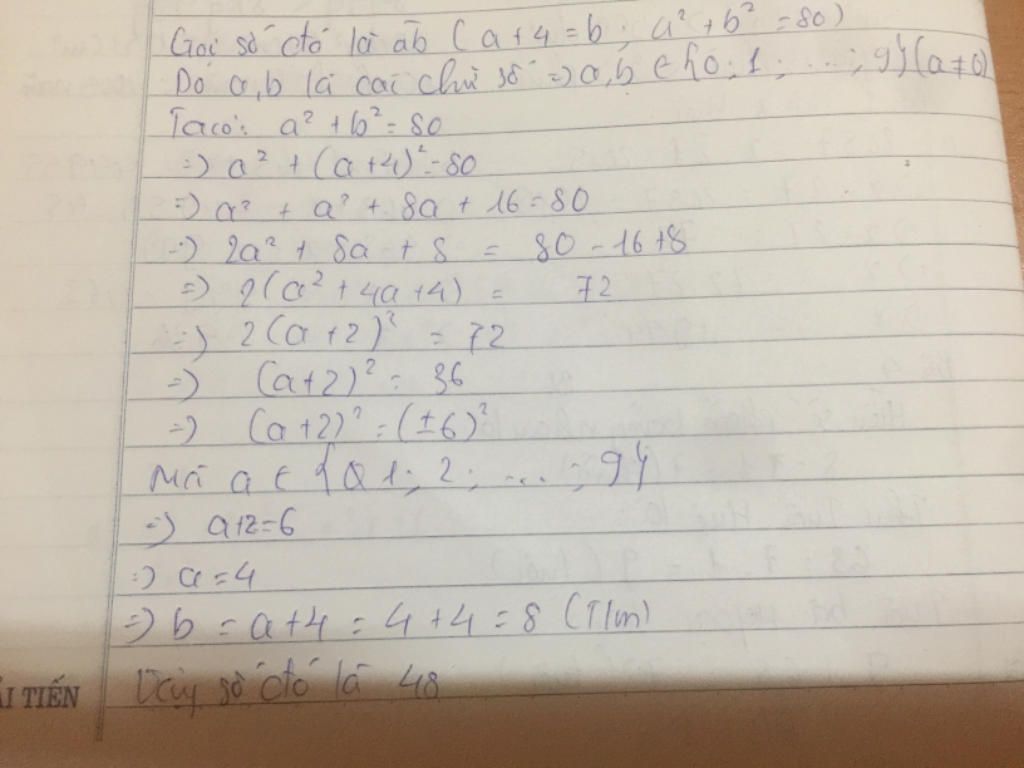 Gọi số đó là ab (a+4=b; a²+b²=80)
Do a,b là các chữ số => a,b ∈ {0;1;...;9} (a≠0)
Ta có: a²+b²=80
=> a² + (a+4)² = 80
=> a² + a² + 8a + 16 = 80
=> 2a² + 8a + 8 = 80 - 16 + 8
=> 2(a² + 4a + 4) = 72
=> 2(a+2)² = 72
=> (a+2)² = 36
=> (a+2)² = (±6)²
Mà a ∈ {0;1;2;...;9}
=> a+2=6
=> a=4
=> b = a+4 = 4+4 = 8 (T/m)
Vậy số đó là 48
ẢI TIẾN